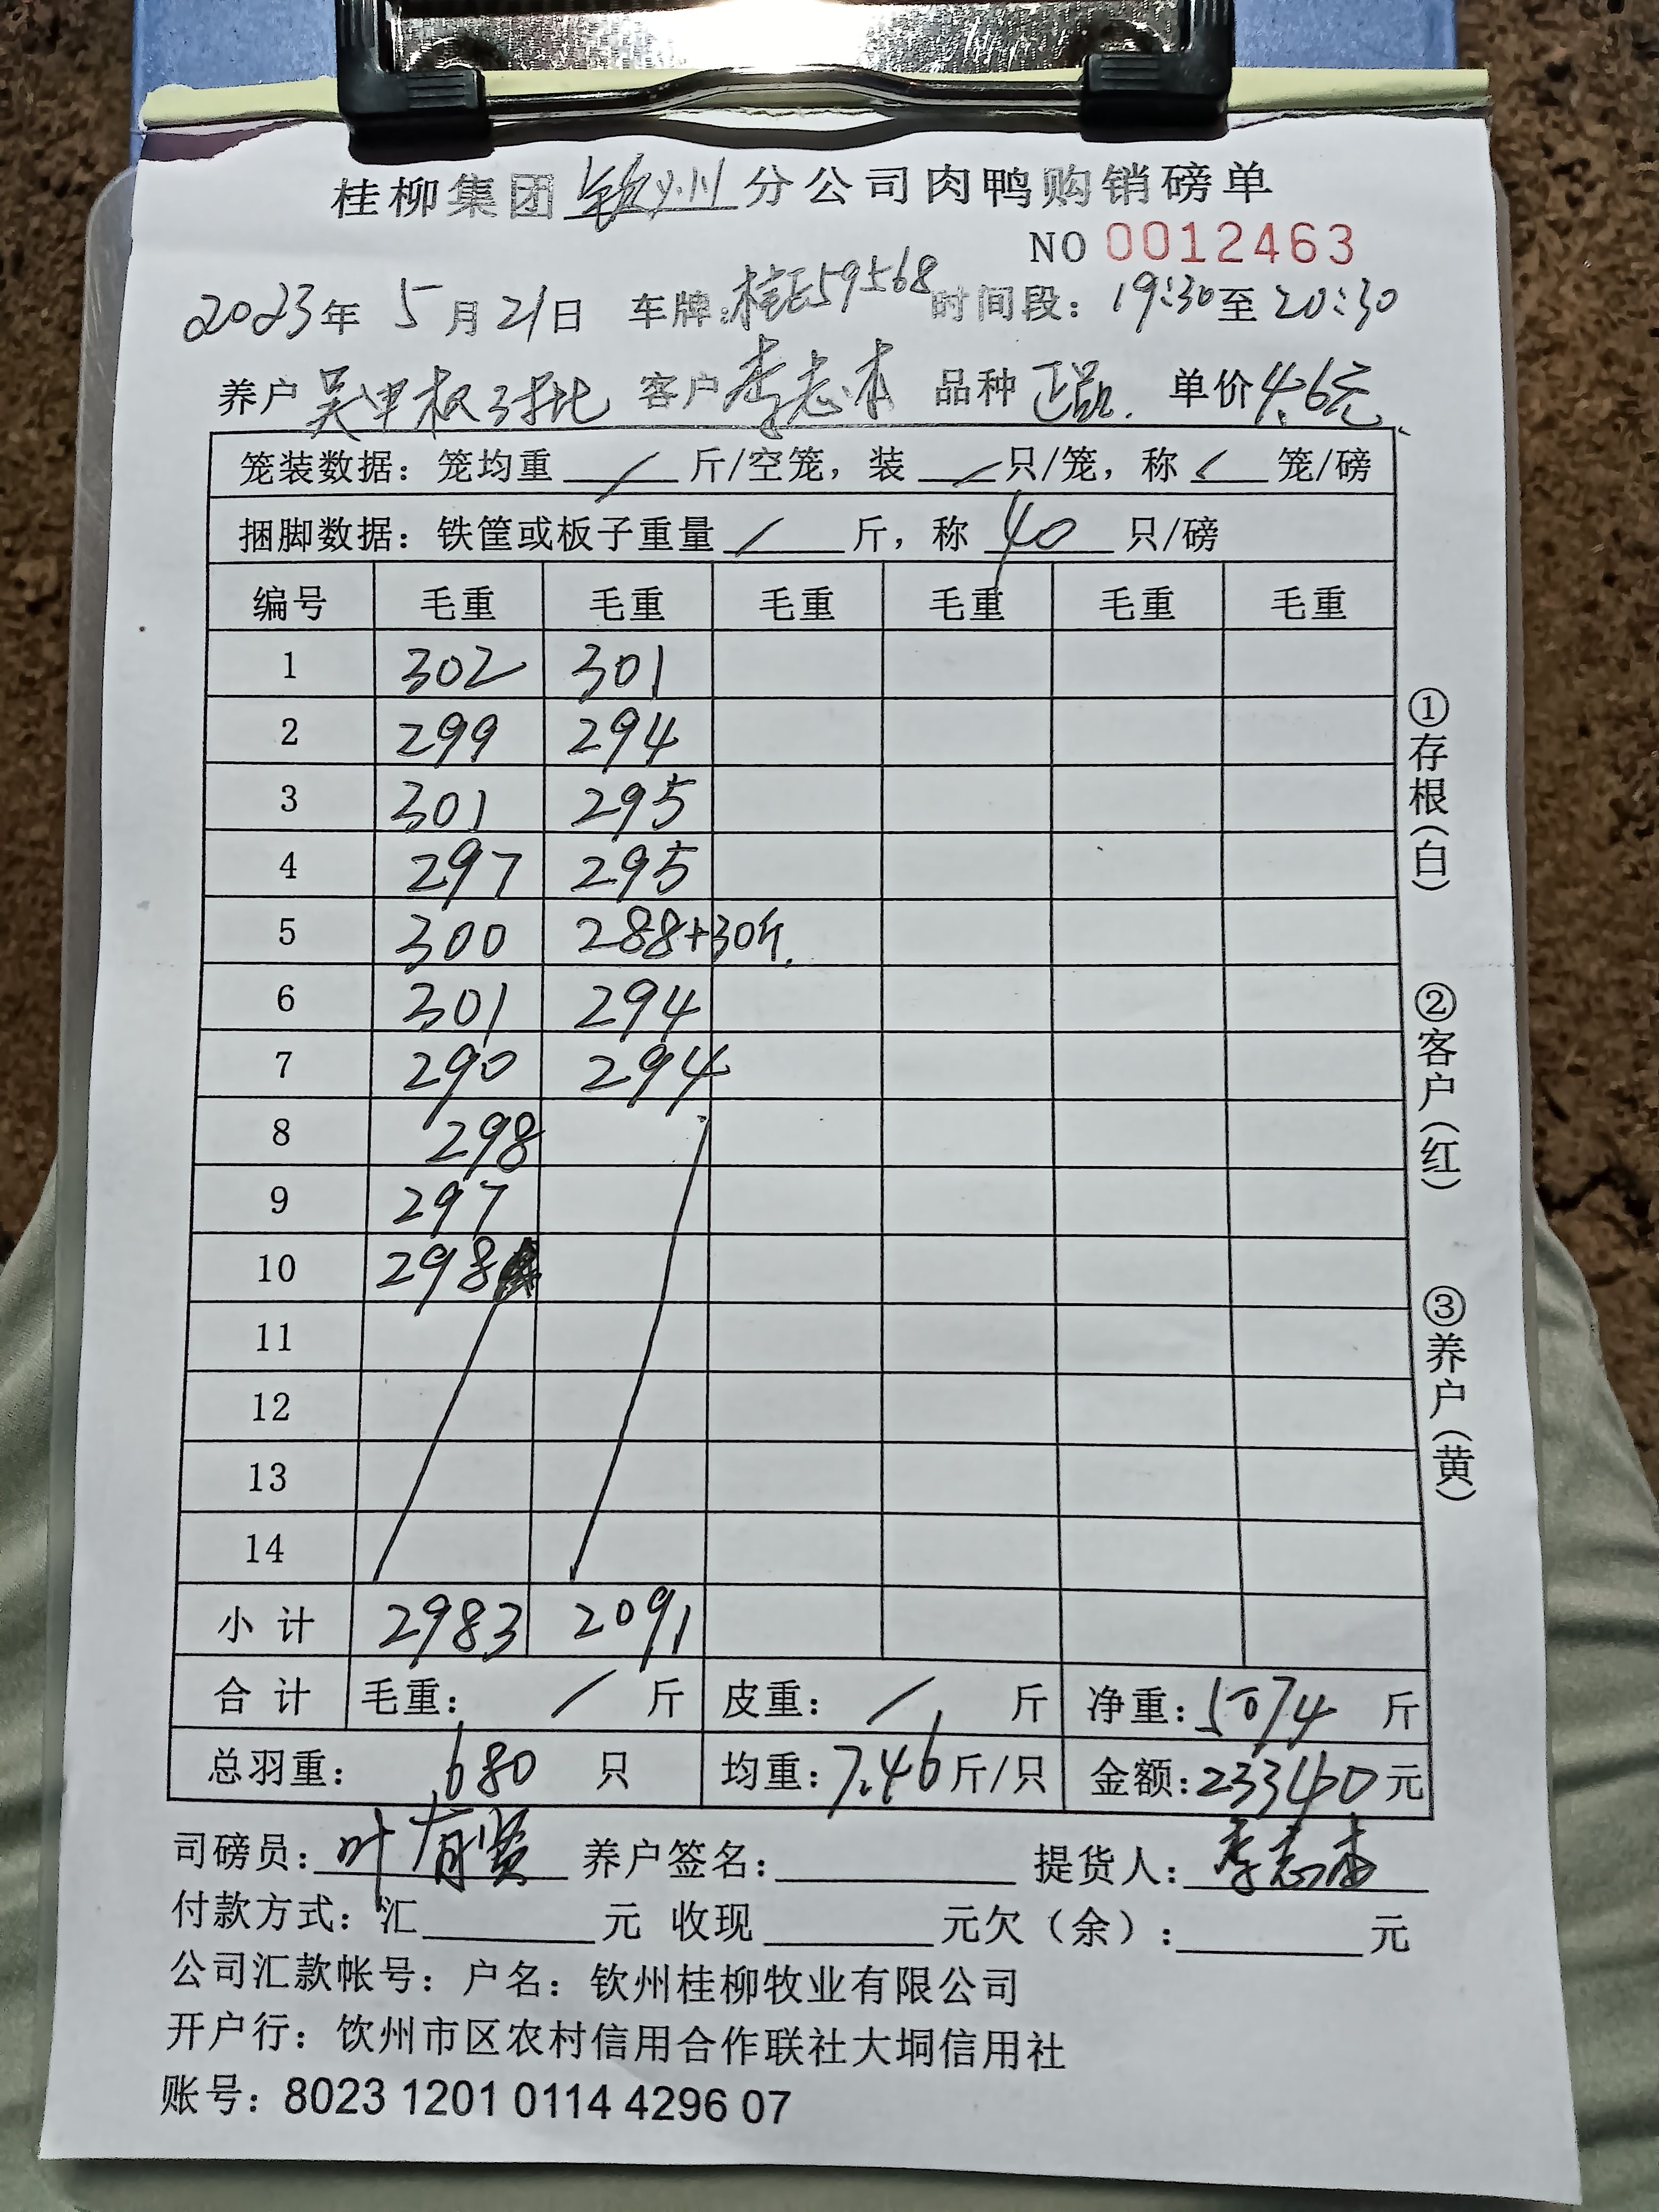 桂柳集团钦州分公司肉鸭购销磅单
NO 0012463
2023年 5月21日 车牌:桂E59568 时间段: 19:30至20:30
养户 吴甲权 客户 李志本 品种 正品. 单价4.6元
笼装数据: 笼均重 / 斤/空笼, 装 / 只/笼, 称 / 笼/磅
捆脚数据: 铁筐或板子重量 / 斤, 称 40 只/磅
编号 毛重 毛重 毛重 毛重 毛重 毛重
1 302 301
2 299 294
3 301 295
4 297 295
5 300 288+30斤.
6 301 294
7 290 294
8 298
9 297
10 298
11
12
13
14
小计 2983 2091
合计 毛重: / 斤 皮重: / 斤 净重: 5074 斤
总羽重: 680 只 均重: 7.46斤/只 金额: 23340元
司磅员: 叶有贤 养户签名: 提货人: 李志本
付款方式: 汇 元 收现 元欠(余): 元
公司汇款帐号: 户名: 钦州桂柳牧业有限公司
开户行: 钦州市区农村信用合作联社大垌信用社
账号: 8023 1201 0114 4296 07
①存根(白)
②客户(红)
③养户(黄)